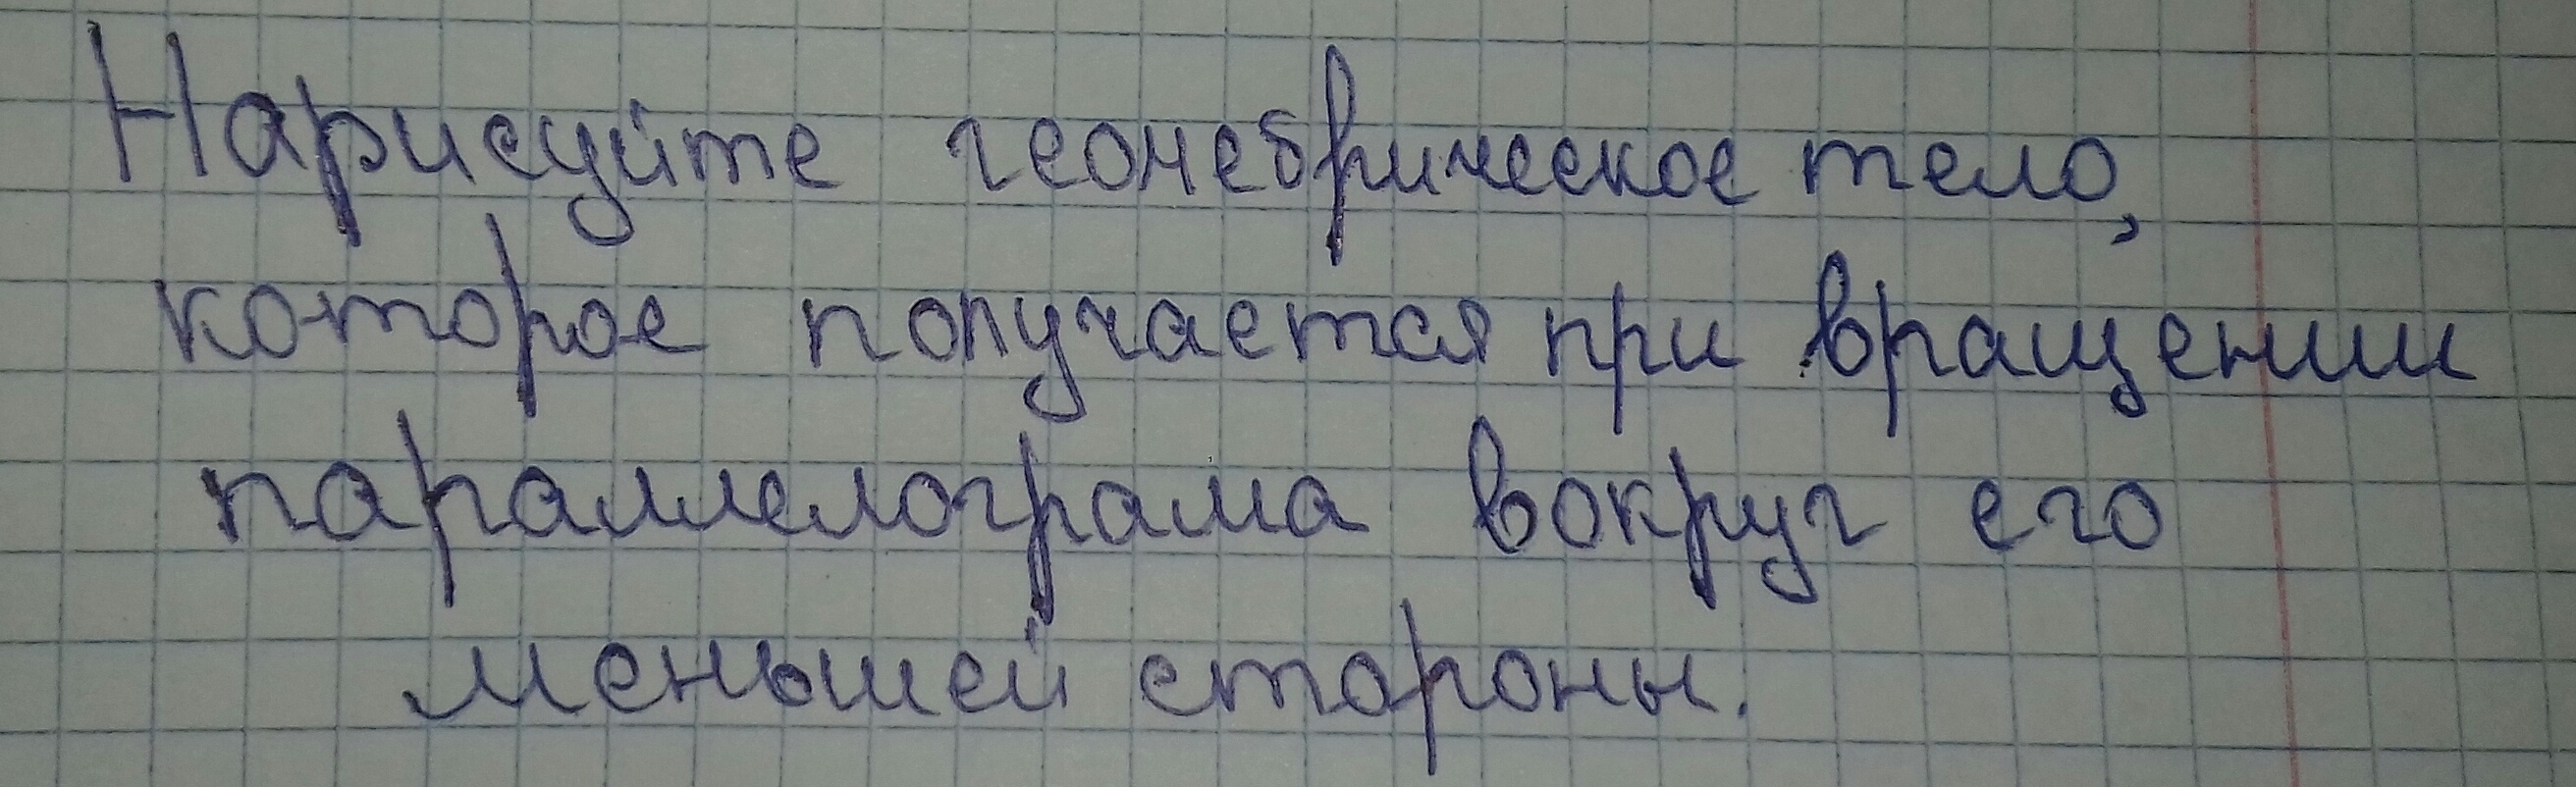 Нарисуйте геомебрическое тело,
которое получается при вращении
параллелограма вокруг его
меньшей стороны.